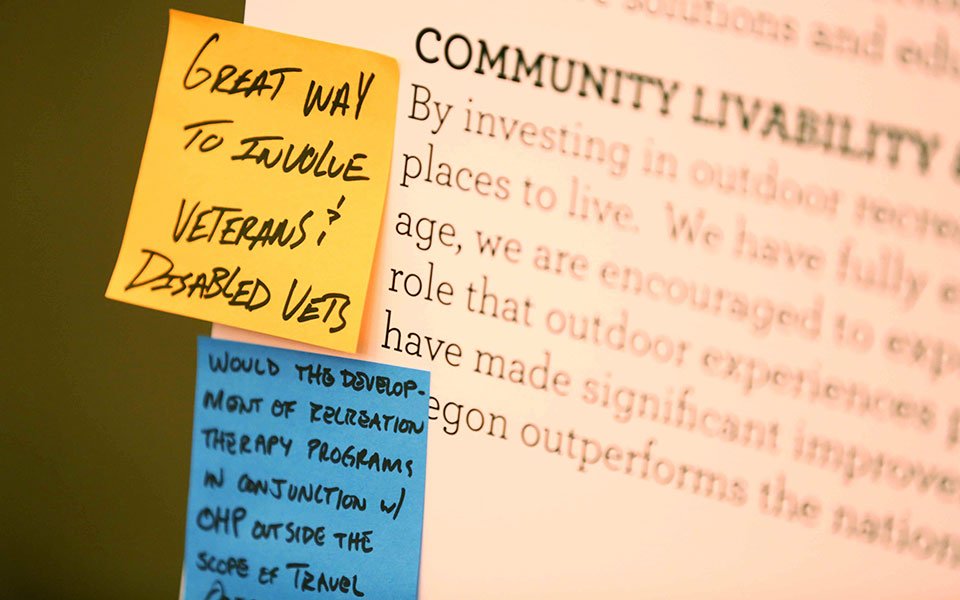 GREAT WAY
TO INVOLVE
VETERANS &
DISABLED VETS
WOULD THE DEVELOP-
MENT OF RECREATION
THERAPY PROGRAMS
IN CONJUNCTION W/
OHP OUTSIDE THE
SCOPE OF TRAVEL
solutions and edu
COMMUNITY LIVABILITY
By investing in outdoor recre
places to live. We have fully e
age, we are encouraged to exp
role that outdoor experiences p
have made significant improve
egon outperforms the nation